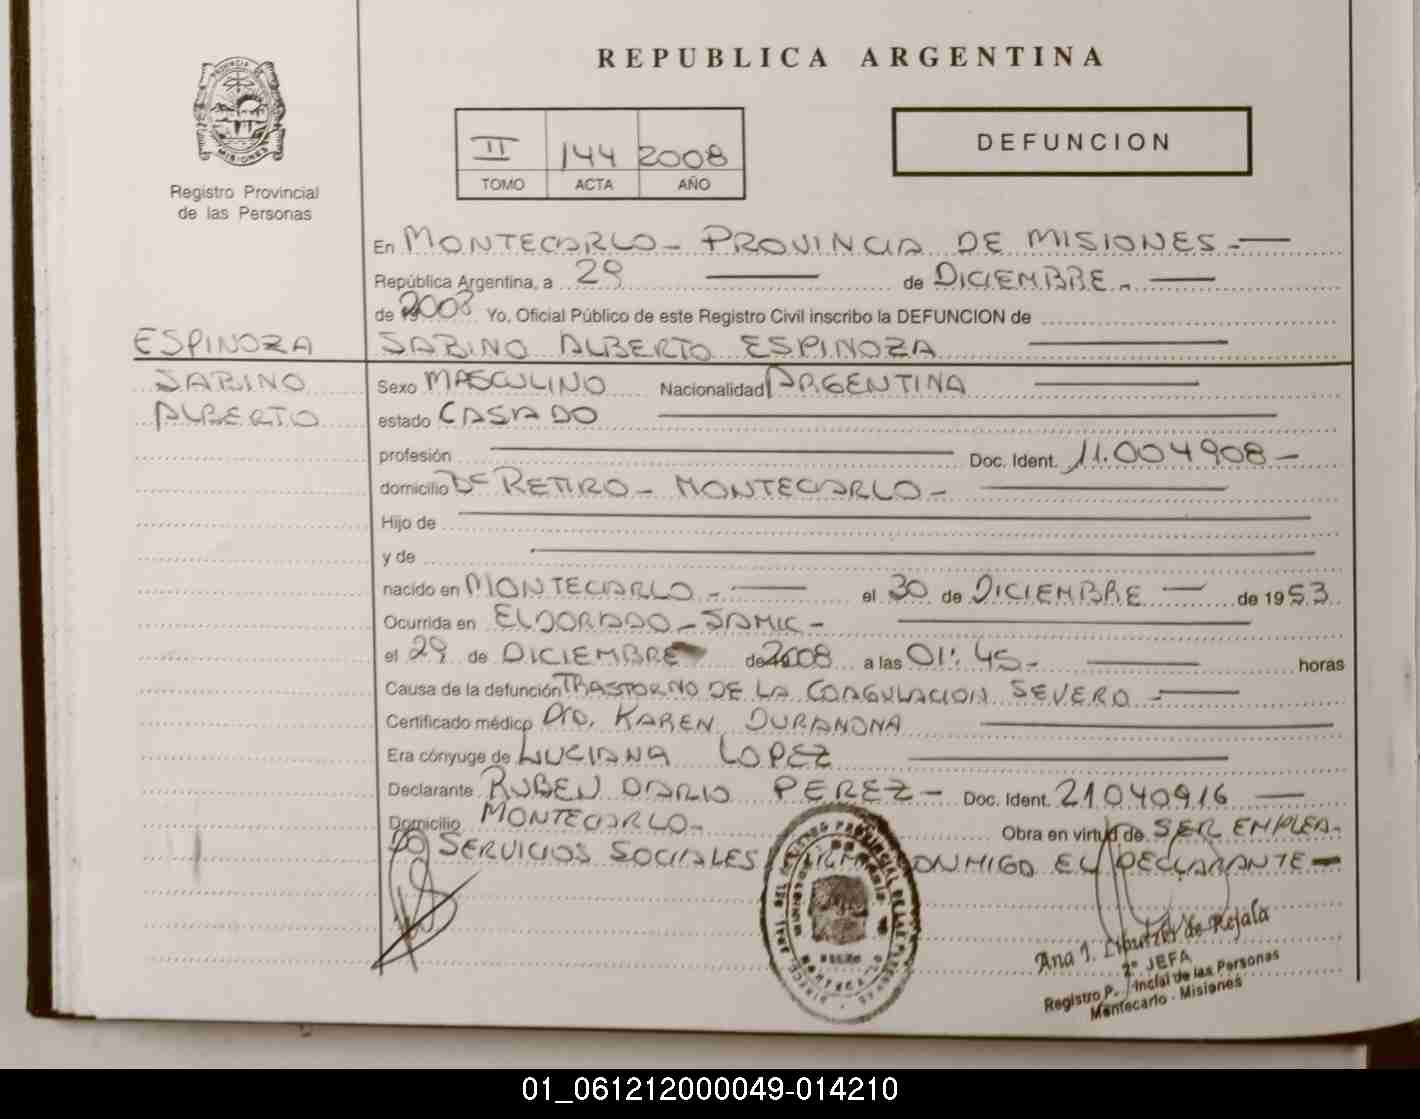 REPUBLICA ARGENTINA
PROVINCIA DE
MISIONES
Registro Provincial
de las Personas
II 144 2008
TOMO ACTA AÑO
DEFUNCION
En MONTECARLO - PROVINCIA DE MISIONES -
República Argentina, a 29 de DICIEMBRE -
de 2008 Yo, Oficial Público de este Registro Civil inscribo la DEFUNCION de
ESPINOZA
SABINO ALBERTO ESPINOZA
SABINO
ALBERTO
Sexo MASCULINO Nacionalidad ARGENTINA
estado CASADO
profesión Doc. Ident. 11.004908 -
domicilio Dc RETIRO - MONTECARLO -
Hijo de
y de
nacido en MONTECARLO - el 30 de DICIEMBRE de 1953
Ocurrida en ELDORADO - SAMIC -
el 29 de DICIEMBRE de 2008 a las 01:45 - horas
Causa de la defunción TRASTORNO DE LA COAGULACION SEVERO -
Certificado médico Dra. KAREN DURANONA
Era cónyuge de LUCIANA LOPEZ
Declarante RUBEN DARIO PEREZ - Doc. Ident. 21040916
Domicilio MONTECARLO - Obra en virtud de SER EMPLEA-
DO SERVICIOS SOCIALES FIRMA CONMIGO EL DECLARANTE -
Ana I. de Rejala
2° JEFA
Registro P. incial de las Personas
Montecarlo - Misiones
01_061212000049-014210